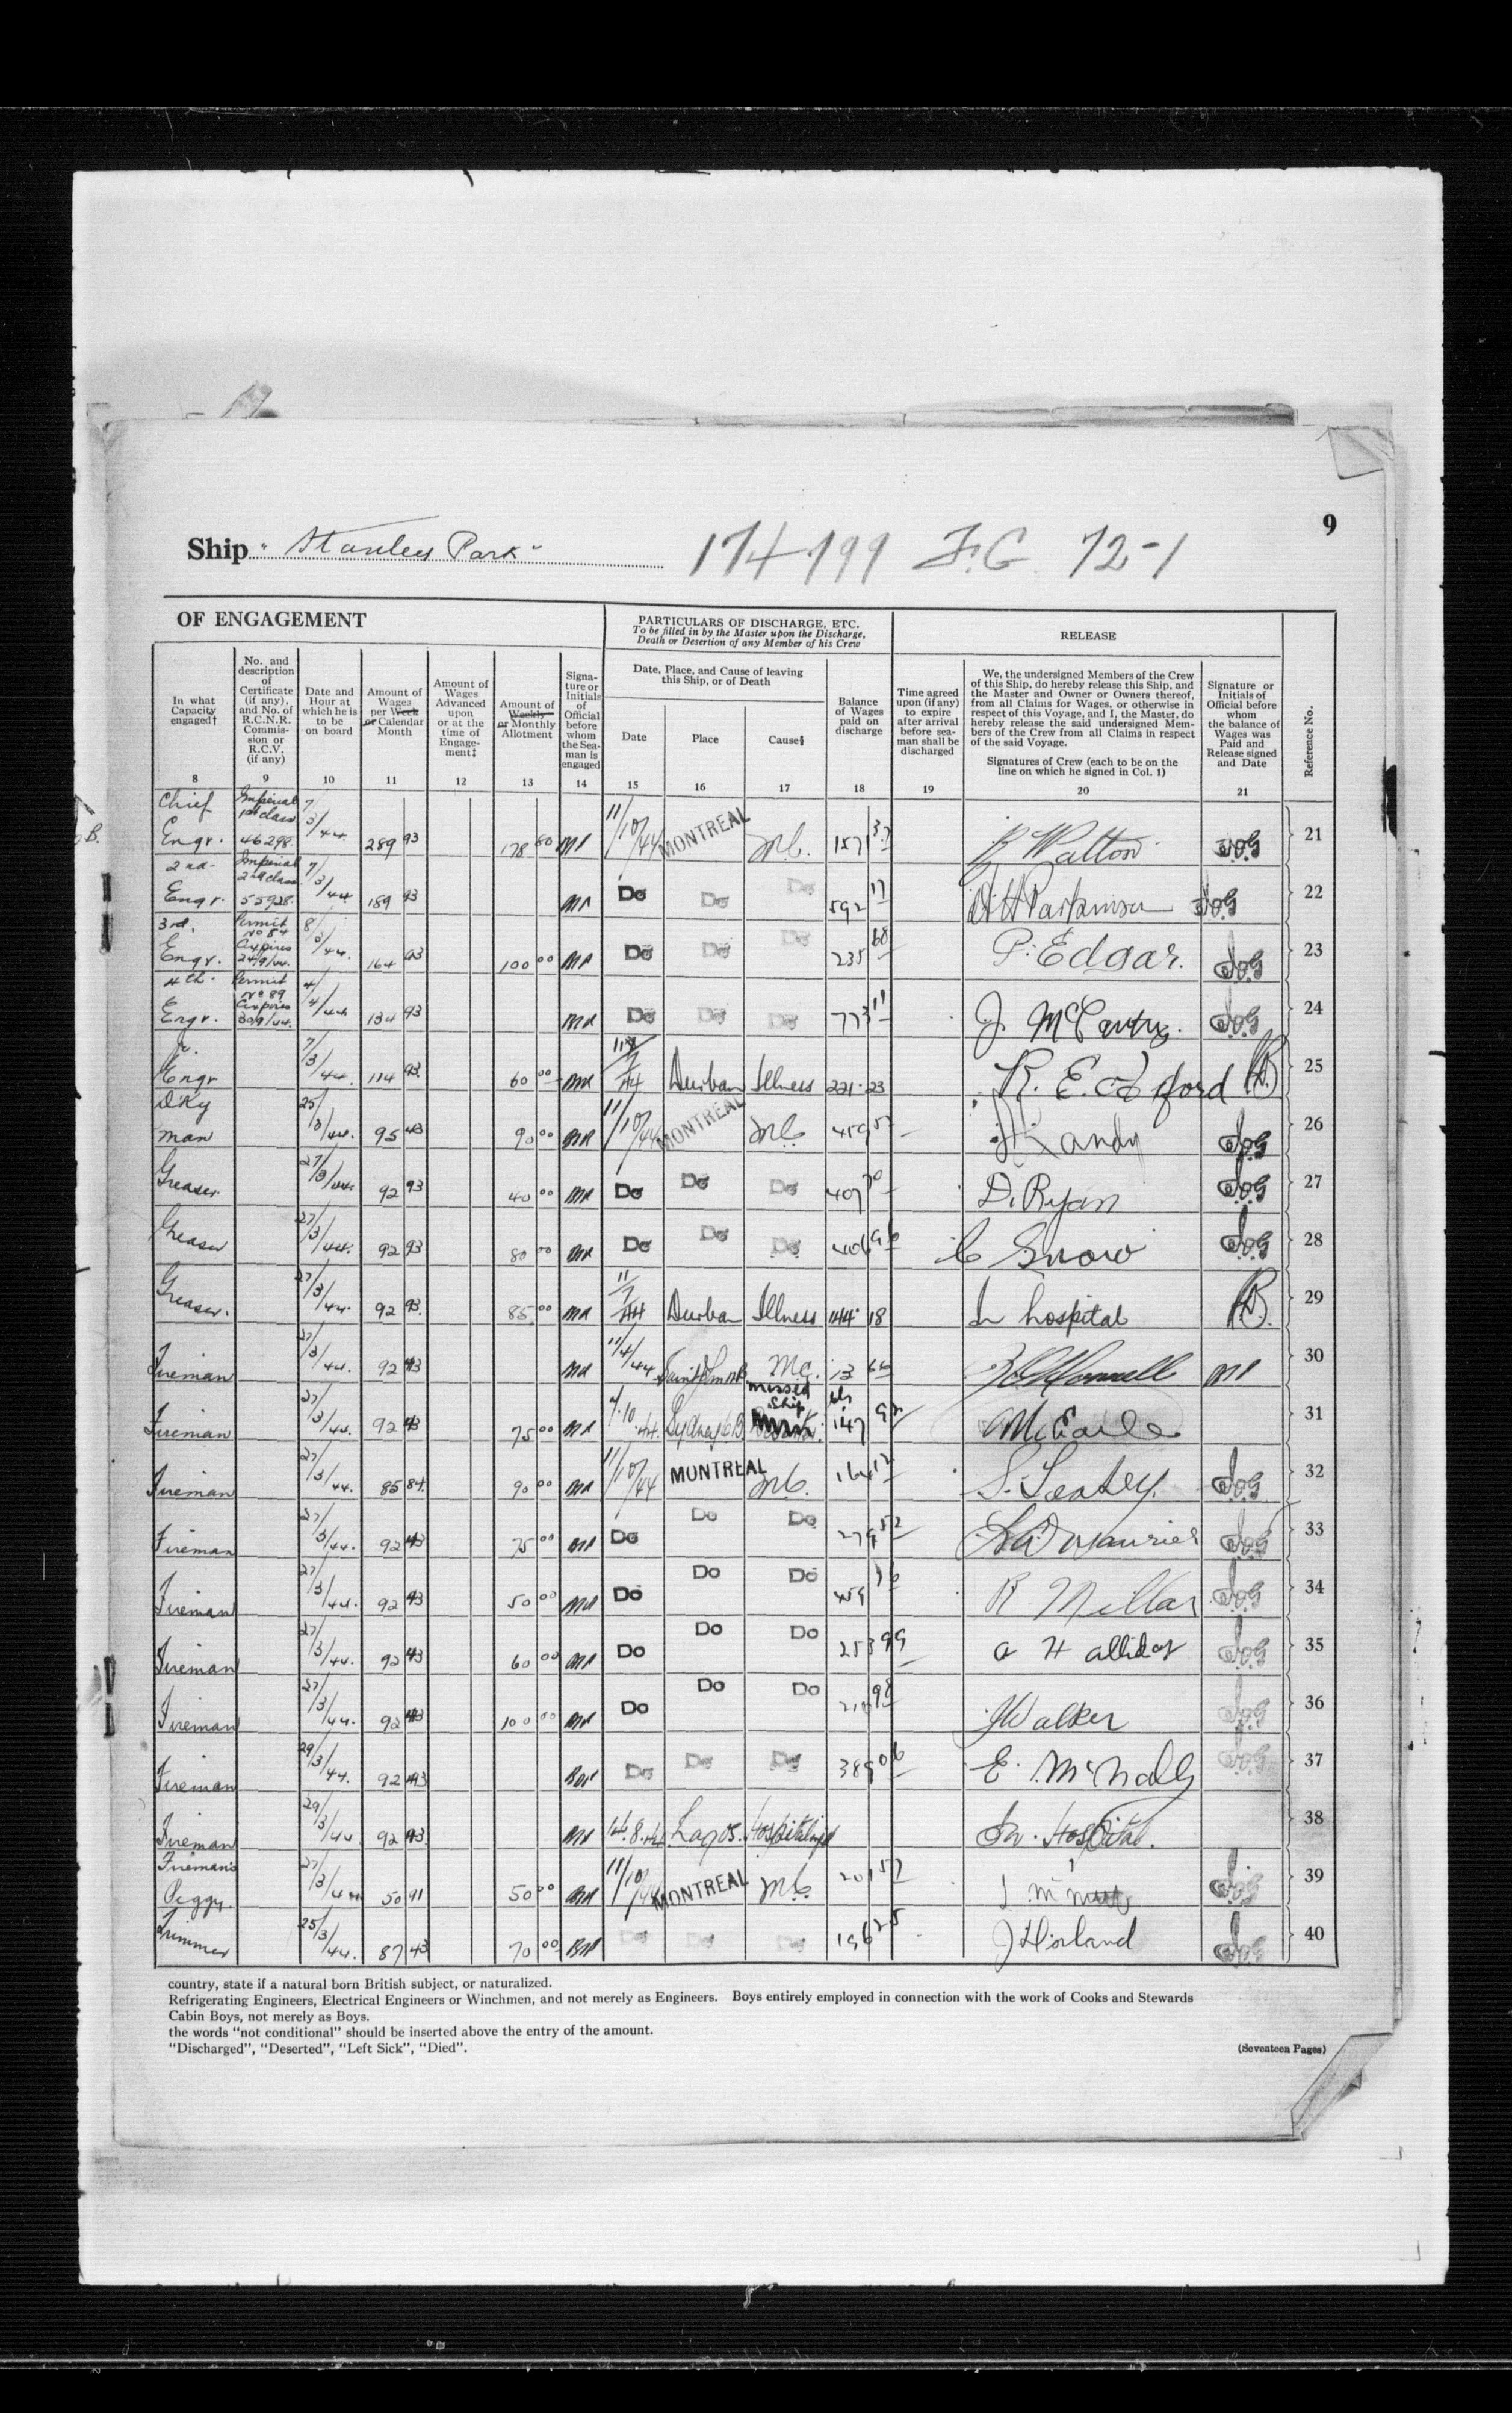 9
Ship "Stanley Park" 174-199 F.G. 72-1
OF ENGAGEMENT
PARTICULARS OF DISCHARGE, ETC.
To be filled in by the Master upon the Discharge,
Death or Desertion of any Member of his Crew
RELEASE
Reference No.
In what
Capacity
engaged†
8
No. and
description
of
Certificate
(if any),
and No. of
R.C.N.R.
Commis-
sion or
R.C.V.
(if any)
9
Date and
Hour at
which he is
to be
on board
10
Amount of
Wages
per Week
or Calendar
Month
11
Amount of
Wages
Advanced
upon
or at the
time of
Engage-
ment‡
12
Amount of
Weekly
or Monthly
Allotment
13
Signa-
ture or
Initials
of
Official
before
whom
the Sea-
man is
engaged
14
Date, Place, and Cause of leaving
this Ship, or of Death
Date
15
Place
16
Cause§
17
Balance
of Wages
paid on
discharge
18
Time agreed
upon (if any)
to expire
after arrival
before sea-
man shall be
discharged
19
We, the undersigned Members of the Crew
of this Ship, do hereby release this Ship, and
the Master and Owner or Owners thereof,
from all Claims for Wages, or otherwise in
respect of this Voyage, and I, the Master, do
hereby release the said undersigned Mem-
bers of the Crew from all Claims in respect
of the said Voyage.
Signatures of Crew (each to be on the
line on which he signed in Col. 1)
20
Signature or
Initials of
Official before
whom
the balance of
Wages was
Paid and
Release signed
and Date
21
Chief Engr. Imperial 1st class 46298 7/3/44. 289 93 178 80 11/10/44 MONTREAL 1571 R Walton 21
2nd Engr. Imperial 2nd class 55928 7/3/44 189 93 Do Do Do 592 17 Parkinson 22
3rd. Engr. Permit No 84 Expires 24/9/44. 8/3/44. 164 93 100 00 Do Do Do 235 68 P. Edgar. 23
4th Engr. Permit No 89 Expires 30/9/44. 4/4/44 134 93 Do Do Do 773 11 J. McCartny. 24
Jr. Engr 7/3/44. 114 93 60 00 Durban Illness 221 23 R. E. 25
Dky man 25/3/44. 95 43 90 00 11/10/44 MONTREAL 459 57 andy 26
Greaser 27/3/44. 92 93 40 00 Do Do Do 407 70 D. Ryan 27
Greaser 27/3/44. 92 93 80 00 Do Do Do 406 96 C Snow 28
Greaser. 27/3/44. 92 93. 85 00 11/7/44 Durban Illness 144 18 In hospital 29
Fireman 27/3/44. 92 43 11/4/44 Saint John NB M.C. 13 66 30
Fireman 27/3/44. 92 43 75 00 7.10.44. Sydney CB missed Ship 147 92 McEarle 31
Fireman 27/3/44. 85 84. 90 00 11/10/44 MONTREAL S. 32
Fireman 27/3/44. 92 43 75 00 Do Do Do 279 52 33
Fireman 27/3/44. 92 43 50 00 Do Do Do 459 R Millar 34
Fireman 27/3/44. 92 43 60 00 Do Do Do 253 99 a Halliday 35
Fireman 27/3/44. 92 43 100 00 Do Do Do 210 98 J Walker 36
Fireman 29/3/44. 92 43 Do Do Do 389 06 E. McNally 37
Fireman 29/3/44 92 43. 14.8.44 Lagos. Hospitalized In Hospital. 38
Fireman's Peggy. 27/3/44 50 91 50 00 11/10/44 MONTREAL 201 57 39
Trimmer 25/3/44. 87 43 70 00 Do Do Do 196 25 J Horland 40
country, state if a natural born British subject, or naturalized.
Refrigerating Engineers, Electrical Engineers or Winchmen, and not merely as Engineers. Boys entirely employed in connection with the work of Cooks and Stewards
Cabin Boys, not merely as Boys.
the words "not conditional" should be inserted above the entry of the amount.
"Discharged", "Deserted", "Left Sick", "Died".
(Seventeen Pages)